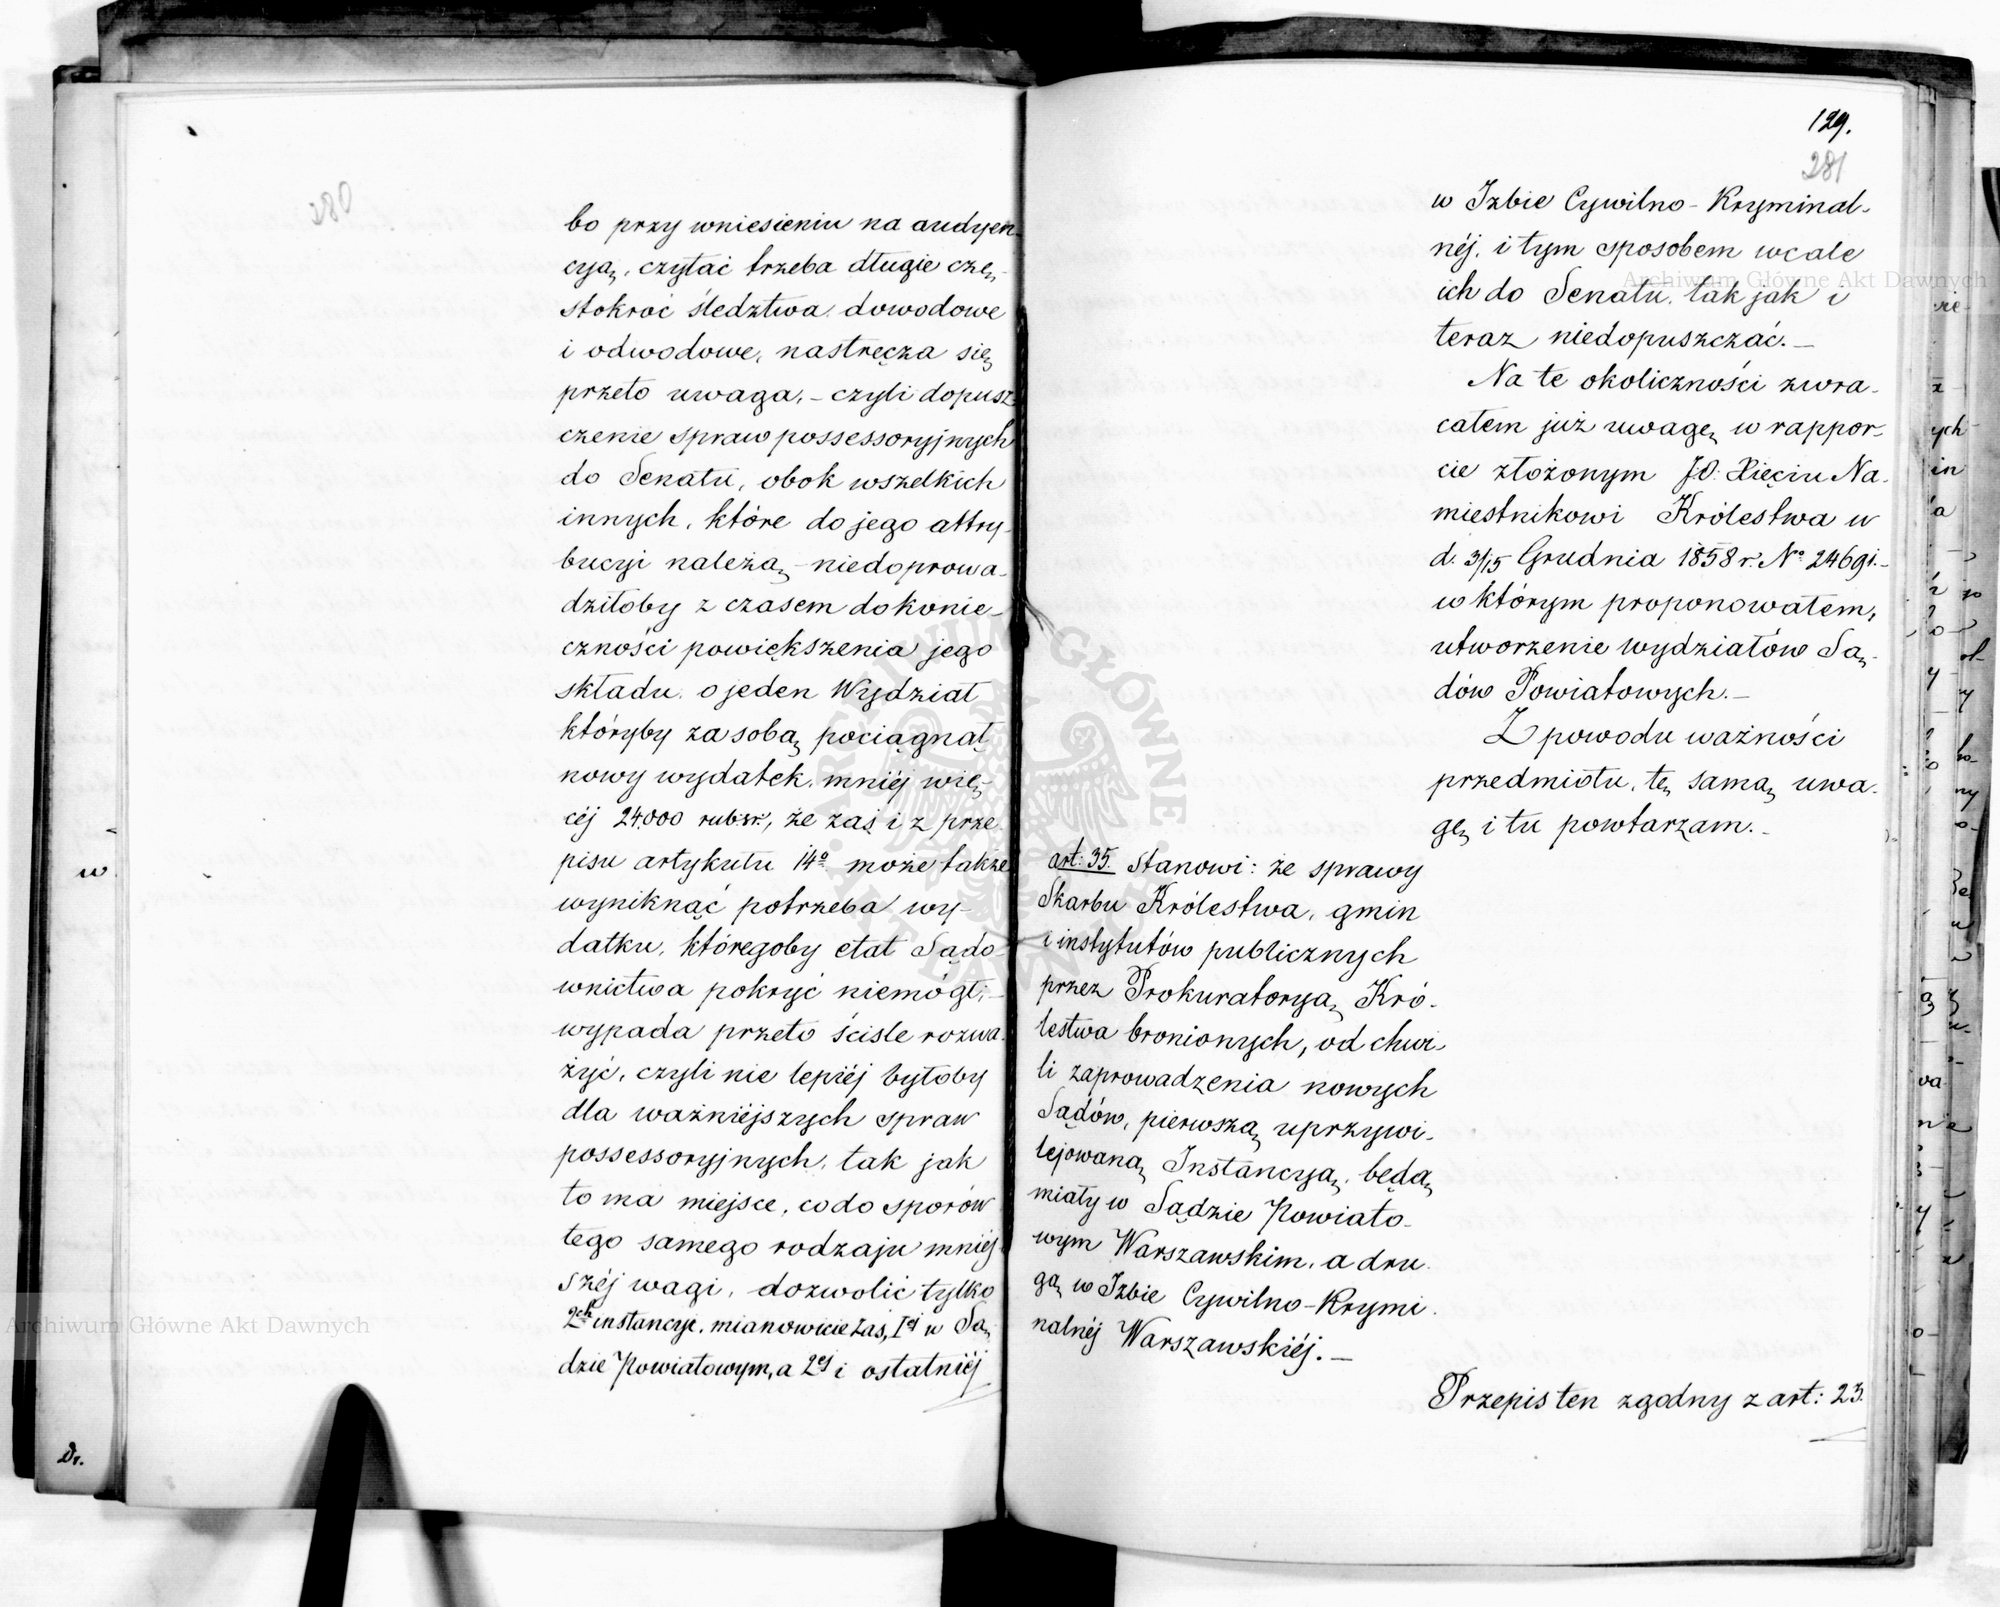 280
bo przy wniesieniu na audyen-
cyą, czytać trzeba długie czę-
stokroć śledztwa dowodowe
i odwodowe, nastręcza się
przeto uwaga, – czyli dopusz
czenie spraw possessoryjnych
do Senatu, obok wszelkich
innych, które do jego attry-
bucyi należą – niedoprowa-
dziłoby z czasem do konie-
czności powiększenia jego
składu o jeden Wydział
któryby za sobą pociągnął
nowy wydatek mniéj wię-
céj 24.000 rub.sr., że zaś i z prze
pisu artykułu 14º może także
wyniknąć potrzeba wy-
datku, któregoby etat Sądo-
wnictwa pokryć niemógł; –
wypada przeto ściśle rozwa
żyć, czyli nie lepiéj byłoby
dla ważniéjszych spraw
possessoryjnych, tak jak
to ma miejsce, co do sporów
tego samego rodzaju mniéj
széj wagi, dozwolić tylko
2ch instancyi, mianowicie zaś, Iéj w Są-
dzie Powiatowym, a 2éj i ostatniéj
129.
281
w Izbie Cywilno-Kryminal-
néj, i tym sposobem wcale
ich do Senatu, tak jak i
teraz niedopuszczać. –
Na te okoliczności zwra-
całem już uwagę w rappor-
cie złożonym JO: Xięciu Na-
miestnikowi Królestwa w
d. 3/15 Grudnia 1858 r. Nº 24691. –
w którym proponowałem,
utworzenie wydziałów Są-
dów Powiatowych. –
Z powodu ważności
przedmiotu, tę samą uwa-
gę i tu powtarzam. –
art: 35. Stanowi: że sprawy
Skarbu Królestwa, gmin
i instytutów publicznych
przez Prokuratoryą Kró-
lestwa bronionych, od chwi-
li zaprowadzenia nowych
Sądów, pierwszą uprzywi-
lejowaną Instancyą, będą
miały w Sądzie Powiato-
wym Warszawskim, a dru-
gą w Izbie Cywilno-Krymi-
nalnéj Warszawskiéj. –
Przepis ten zgodny z art: 23.
w
Dr.
Archiwum Główne Akt Dawnych
Archiwum Główne Akt Dawnych
ARCHIWUM GŁÓWNE AKT DAWNYCH